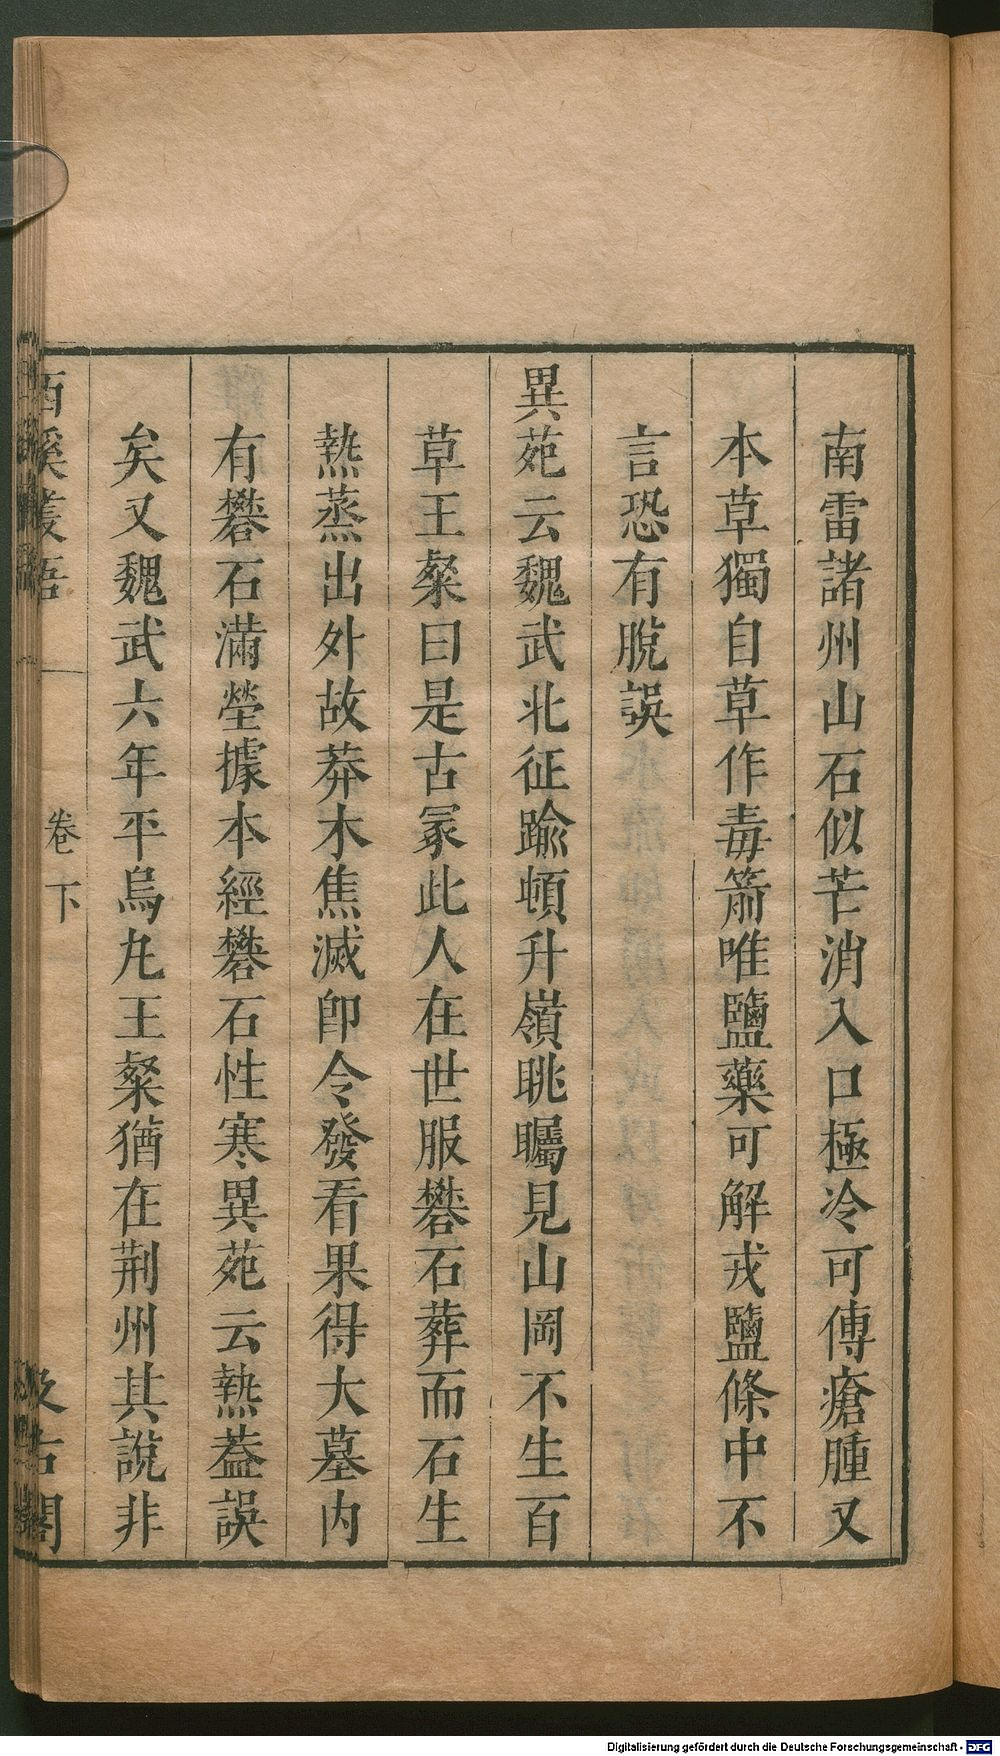 南雷諸州山石似芒消入口極冷可傅瘡腫又
本草獨自草作毒箭唯鹽藥可解戎鹽條中不
言恐有脫誤
異苑云魏武北征踰頓升嶺眺矚見山岡不生百
草王粲曰是古冢此人在世服礬石葬而石生
熱蒸出外故莽木焦滅卽令發看果得大墓內
有礬石滿塋據本經礬石性寒異苑云熱葢誤
矣又魏武六年平烏丸王粲猶在荆州其說非
西溪叢語 卷下 汲古閣
Digitalisierung gefördert durch die Deutsche Forschungsgemeinschaft - DFG